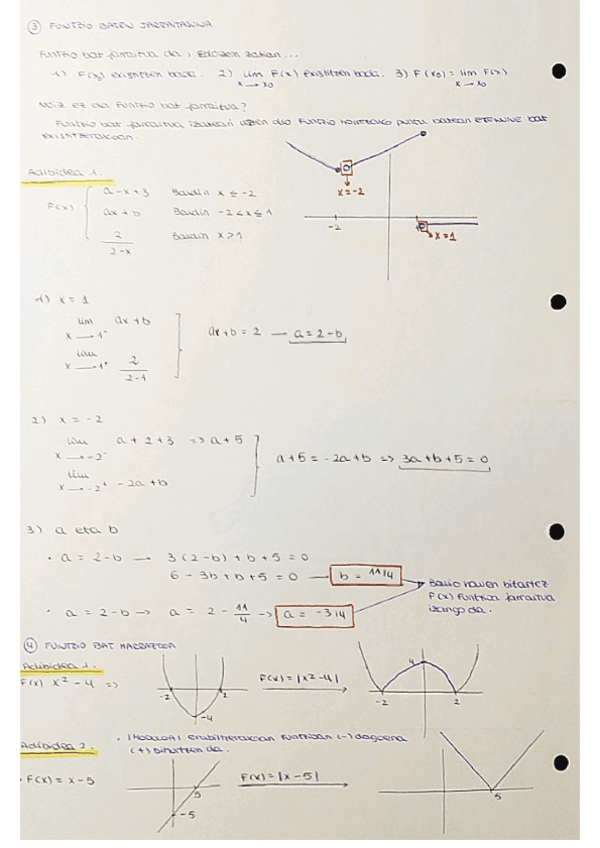 ③ FUNTZIO BATEN JARRAITASUNA
Funtzio bat jarraitua da, edozein zatian...
1) F(x₀) existitzen bada. 2) lim F(x) existitzen bada. 3) F(x₀) = lim F(x)
x → x₀ x → x₀
Noiz ez da funtzio bat jarraitua?
Funtzio bat jarraitua izateari uzten dio funtzio horretako puntu batean ETENUNE bat
existitzerakoan.
Adibidea 1.
F(x) { a - x + 3 Baldin x ≤ -2
ax + b Baldin -2 < x ≤ 1
2/(2-x) Baldin x > 1
x = -2
-2
1
x = 1
1) x = 1
lim ax + b
x → 1⁻
lim 2/(2-1)
x → 1⁺
ax + b = 2 — a = 2 - b
2) x = -2
lim a + 2 + 3 => a + 5
x → -2⁻
lim -2a + b
x → -2⁺
a + 5 = -2a + b => 3a + b + 5 = 0
3) a eta b
• a = 2 - b → 3(2-b) + b + 5 = 0
6 - 3b + b + 5 = 0 → b = 11/4
• a = 2 - b → a = 2 - 11/4 -> a = -3/4
Balio hauen bitartez
F(x) funtzioa jarraitua
izango da.
④ FUNTZIO BAT MARRAZTEA
Adibidea 1.
F(x) x² - 4 =>
-2 2 -4
F(x) = |x² - 4|
4 -2 2
Adibidea 2.
• |Modulo| erabiltzerakoan funtzioan (-) dagoena
(+) bihurtzen da.
• F(x) = x - 5
5 -5
F(x) = |x - 5|
5